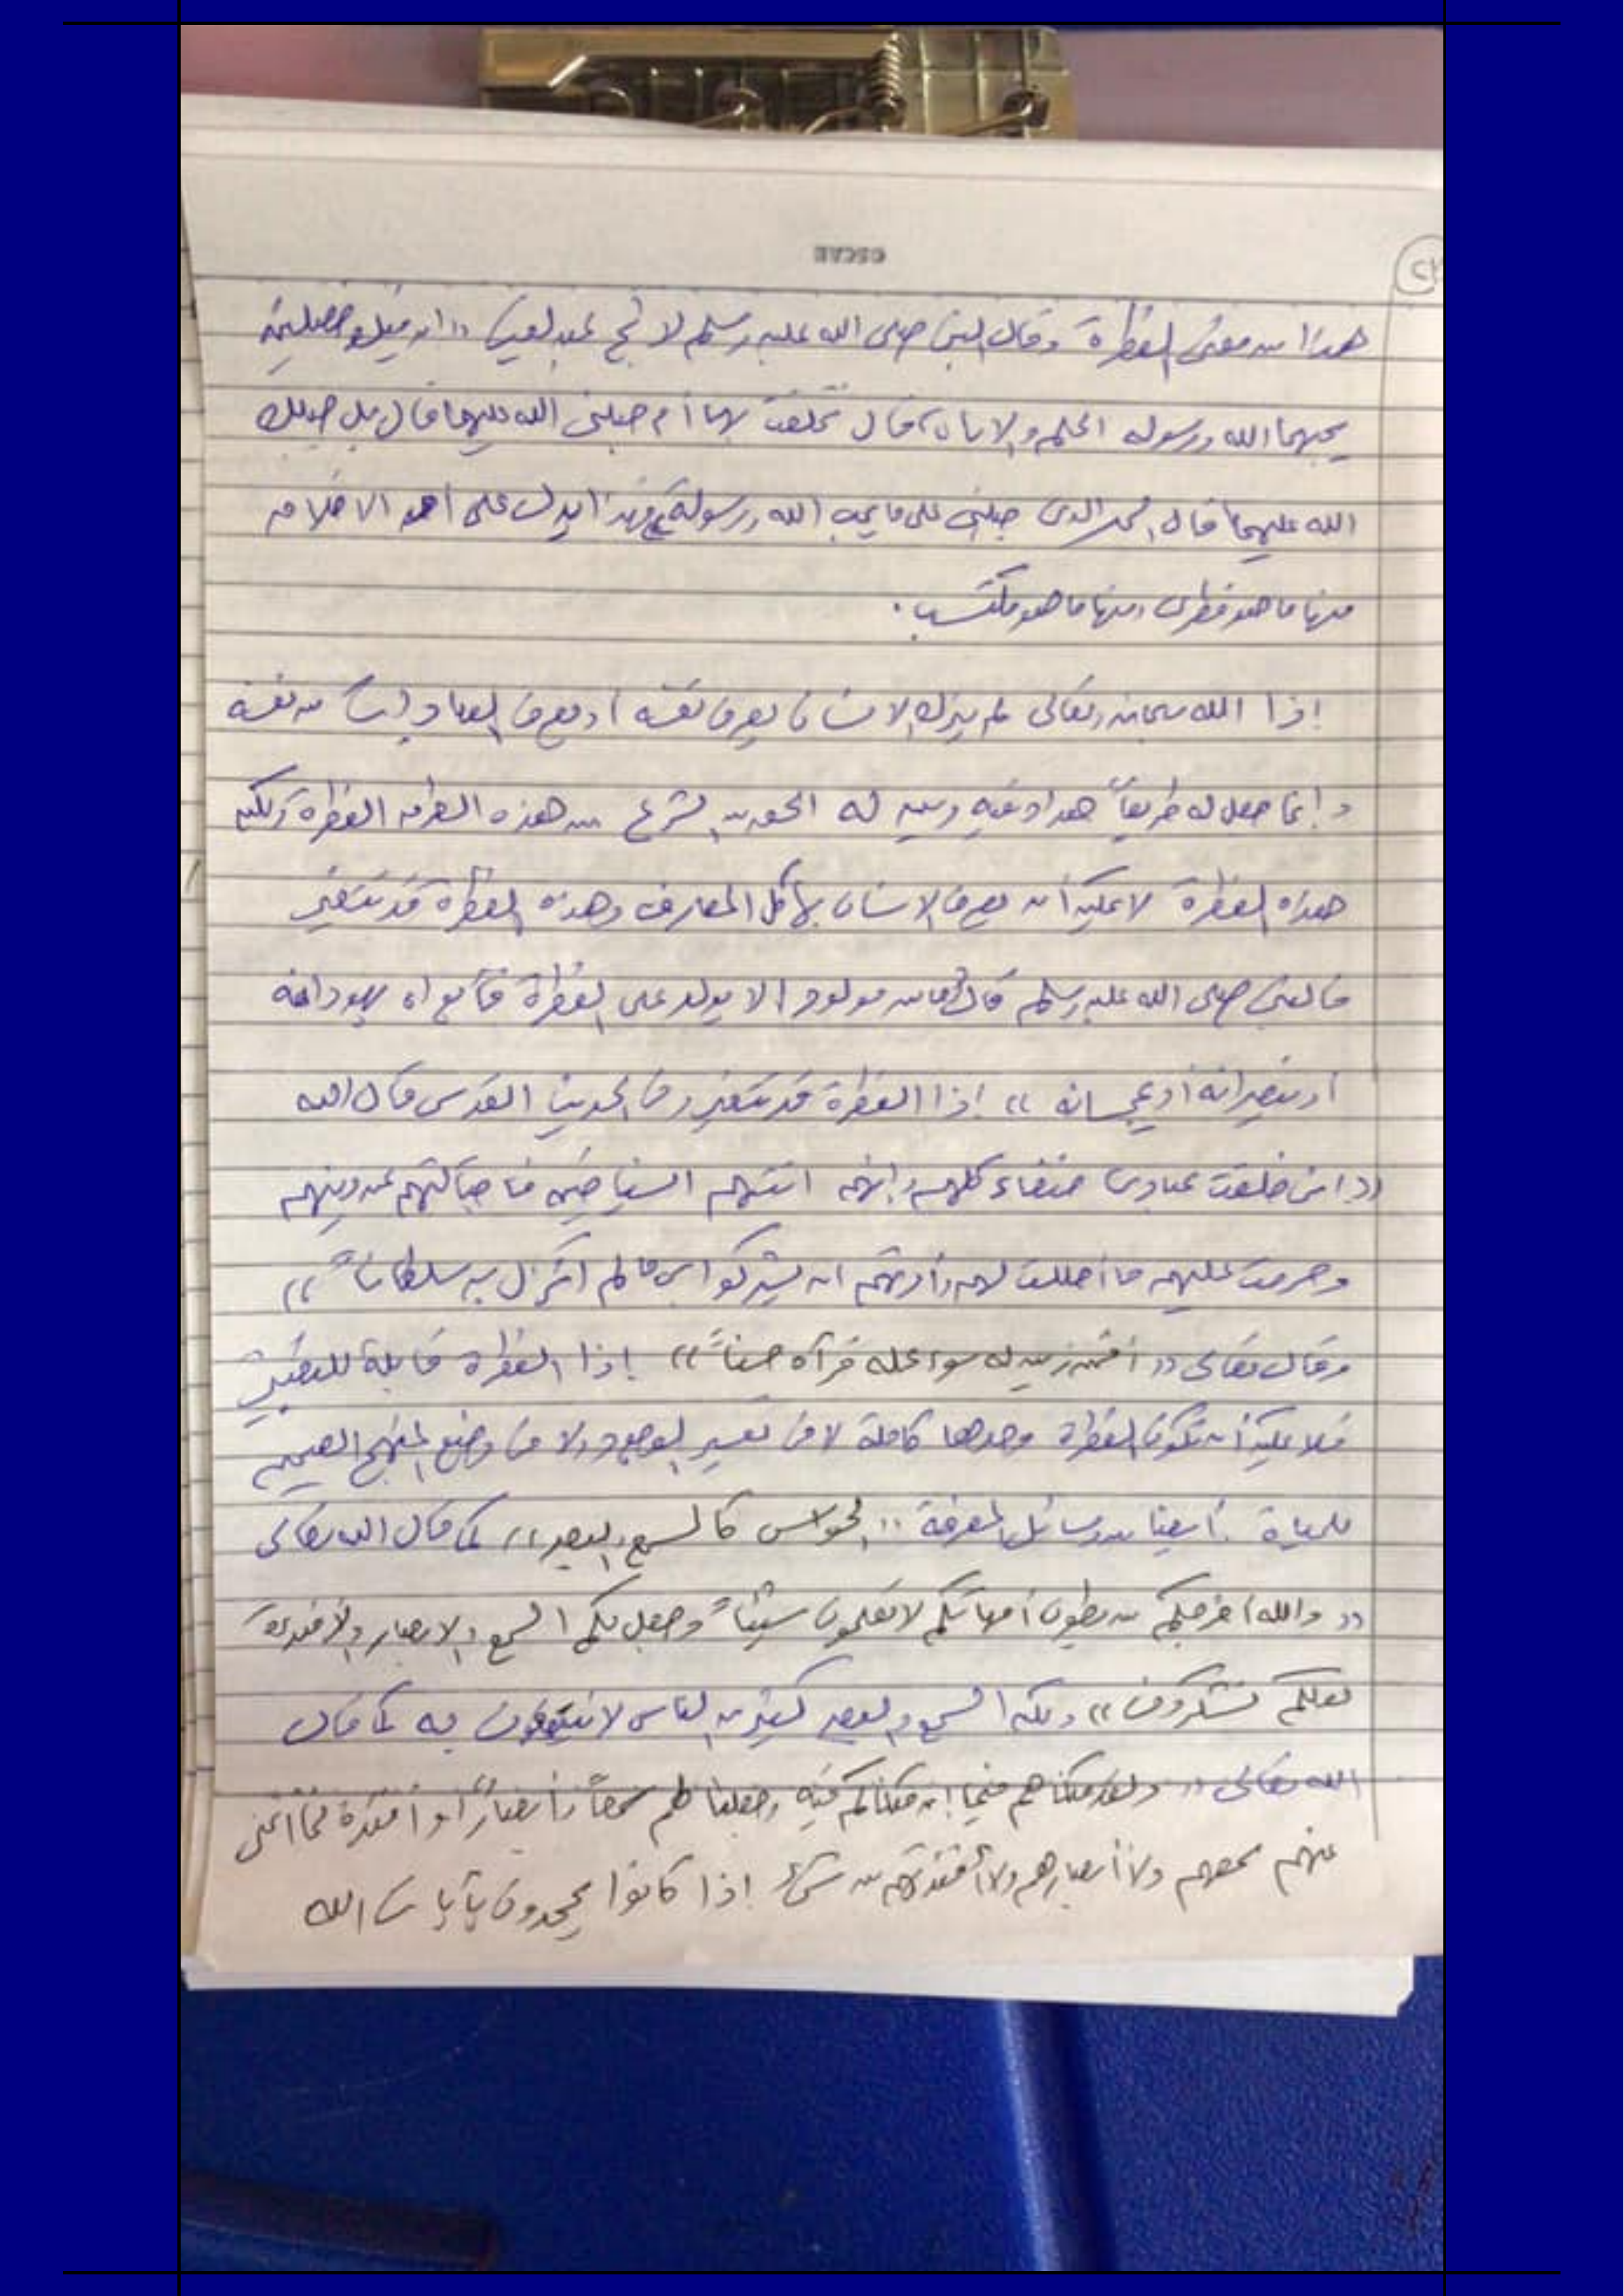 OSCAR
٢٣
هذا من معنى الفطرة وقال النبي صلى الله عليه وسلم لأشج عبد القيس « إن فيك خصلتين
يحبهما الله ورسوله الحلم والاناة، قال تخلقت بهما أم جبلني الله عليهما قال بل جبلك
الله عليهما قال الحمد الذي جبلني على ما يحب الله ورسوله» فهذا يدل على أن الاخلاق
منها ما هو فطري ومنها ما هو مكتسب.
إذا الله سبحانه وتعالى لم يترك الانسان يعرف نفسه أو يعرف العبادات من نفسه
وإنما جعل له طريقاً هداه فيه وبين له الحق من الشرع من هذه الطرق الفطرة ولكن
هذه الفطرة لا يمكن أن يعرف الانسان بها كل المعارف وهذه الفطرة قد تتغير
فالنبي صلى الله عليه وسلم قال «ما من مولود الا يولد على الفطرة فأبواه يهودانه
أو ينصرانه أو يمجسانه » إذا الفطرة قد تتغير وفي الحديث القدسي قال الله
«اني خلقت عبادي حنفاء كلهم وإنهم اتتهم الشياطين فاجتالتهم عن دينهم
وحرمت عليهم ما أحللت لهم وأمرتهم ان يشركوا بي ما لم انزل به سلطاناً»
وقال تعالى «أفمن زين له سوء عمله فرآه حسناً» إذا الفطرة قابلة للتغير
فلا يمكن أن تكون الفطرة وحدها كاملة لا في تفسير الوجود ولا في وضع المنهج الصحيح
للحياة. أيضا من وسائل المعرفة «الحواس كالسمع والبصر» كما قال الله تعالى
«والله أخرجكم من بطون أمهاتكم لا تعلمون شيئاً وجعل لكم السمع والابصار والأفئدة
لعلكم تشكرون» ولكن السمع والبصر كثير من الناس لا ينتفعون به كما قال
الله تعالى «ولقد مكناهم فيما إن مكناكم فيه وجعلنا لهم سمعاً وأبصاراً وأفئدة فما أغنى
عنهم سمعهم ولا أبصارهم ولا أفئدتهم من شيء إذا كانوا يجحدون بآيات الله